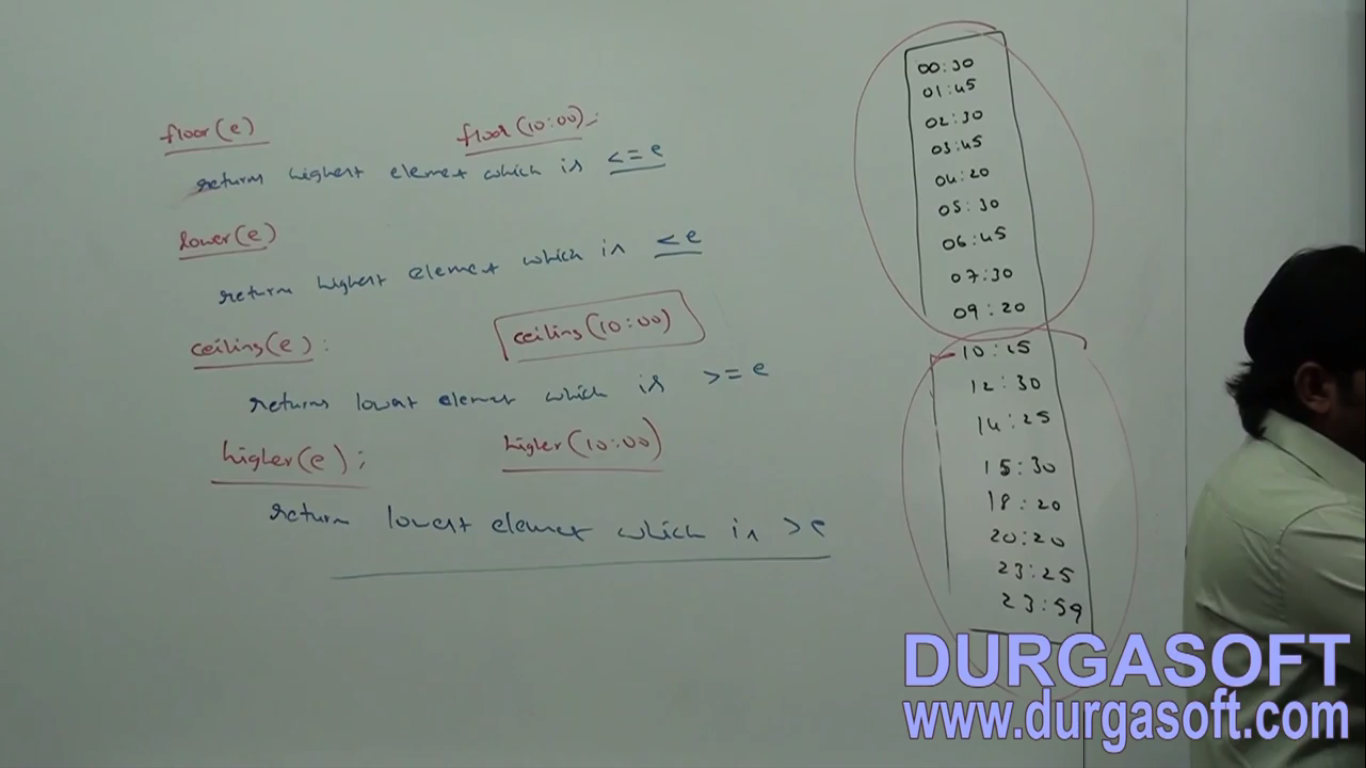 floor(e)
floor(10:00);
returns highest element which is <=e
lower(e)
return highest element which is <e
ceiling(e):
ceiling(10:00)
returns lowest element which is >=e
higher(e);
higher(10:00)
return lowest element which is >e
00:30
01:45
02:30
03:45
04:20
05:30
06:45
07:30
09:20
10:15
12:30
14:25
15:30
18:20
20:20
23:25
23:59
DURGASOFT
www.durgasoft.com